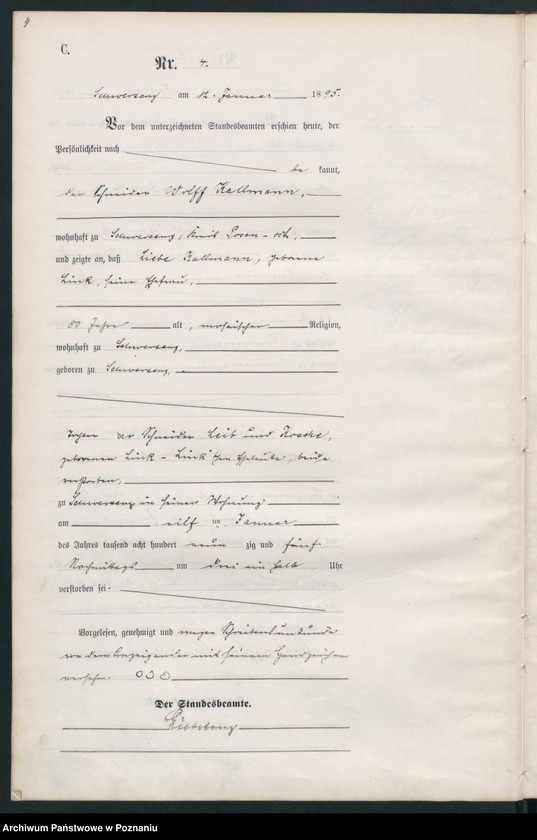 4
C.
Nr. 4.
Schwersenz am 12. Januar 1895.
Vor dem unterzeichneten Standesbeamten erschien heute, der
Persönlichkeit nach
be kannt,
der Schneider Wolff Kallmann,
wohnhaft zu Schwersenz, Kreis Posen-Ost,
und zeigte an, daß Liebe Kallmann, geborene
Link, seine Ehefrau,
80 Jahre alt, mosaischer Religion,
wohnhaft zu Schwersenz,
geboren zu Schwersenz,
Tochter der Schneider Leib und
geborenen Link - Link'schen Eheleute, beide
verstorben,
zu Schwersenz in seiner Wohnung
am eilf ten Januar
des Jahres tausend acht hundert neun zig und fünf
Nachmittags um drei ein halb Uhr
verstorben sei.
Vorgelesen, genehmigt und wegen Schreibensunkunde
von dem Anzeigenden mit seinem Handzeichen
versehen. ooo
Der Standesbeamte.
Archiwum Państwowe w Poznaniu